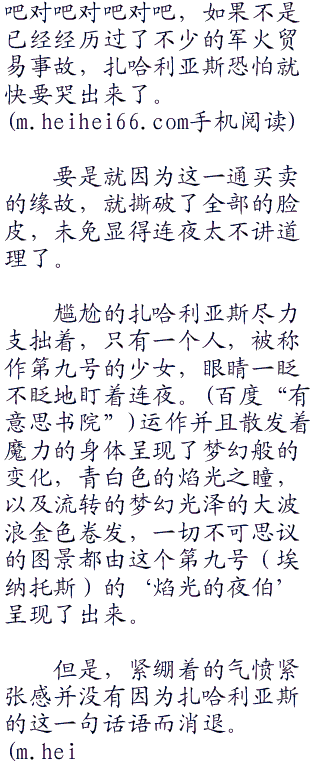 吧对吧对吧对吧，如果不是
已经经历过了不少的军火贸
易事故，扎哈利亚斯恐怕就
快要哭出来了。
(m.heihei66.com手机阅读)
要是就因为这一通买卖
的缘故，就撕破了全部的脸
皮，未免显得连夜太不讲道
理了。
尴尬的扎哈利亚斯尽力
支拙着，只有一个人，被称
作第九号的少女，眼睛一眨
不眨地盯着连夜。(百度“有
意思书院”)运作并且散发着
魔力的身体呈现了梦幻般的
变化，青白色的焰光之瞳，
以及流转的梦幻光泽的大波
浪金色卷发，一切不可思议
的图景都由这个第九号（埃
纳托斯）的‘焰光的夜伯’
呈现了出来。
但是，紧绷着的气愤紧
张感并没有因为扎哈利亚斯
的这一句话语而消退。
(m.hei